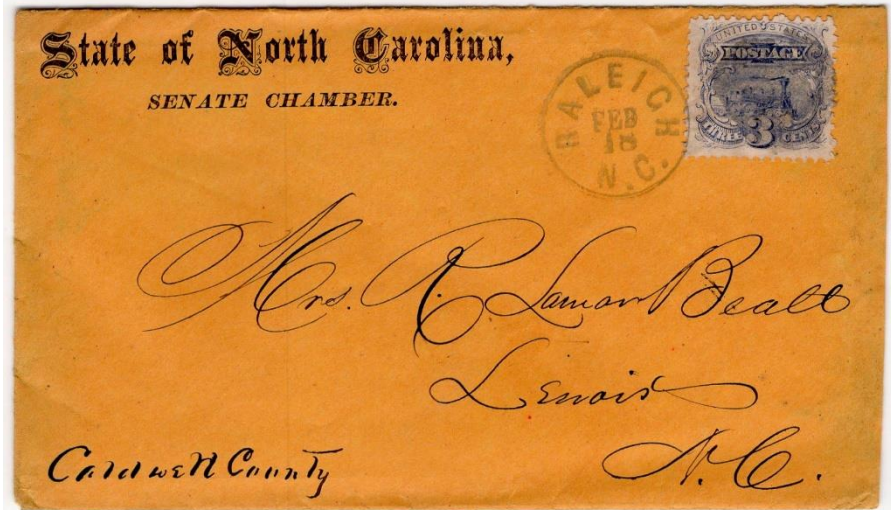 State of North Carolina,
SENATE CHAMBER.
RALEIGH
FEB
18
N.C.
UNITED STATES
POSTAGE
THREE 3 CENTS
Mrs. R. Lamar Beall
Lenoir
N.C.
Caldwell County